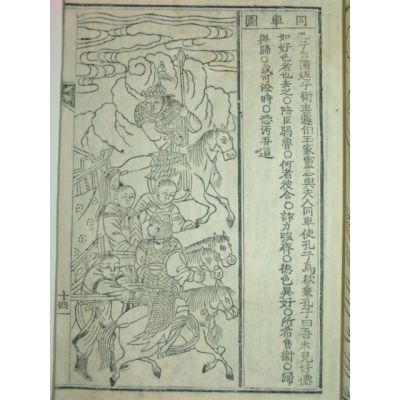 同車圖
孔子自蒲返乎衛主蘧伯玉家靈公與夫人同車使孔子爲次乘孔子曰吾未見好德
如好色者也去之○陪臣弱魯○何者彼合○詐力強齊○德色異好○所售衛○歸
與歸○或可時○恐汚吾道
十四